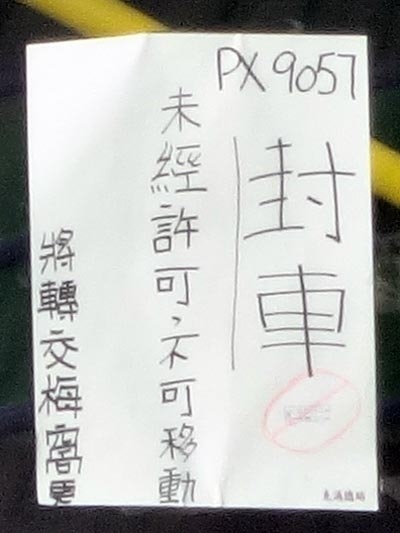 PX 9057
封車
未經許可，不可移動
將轉交梅窩更